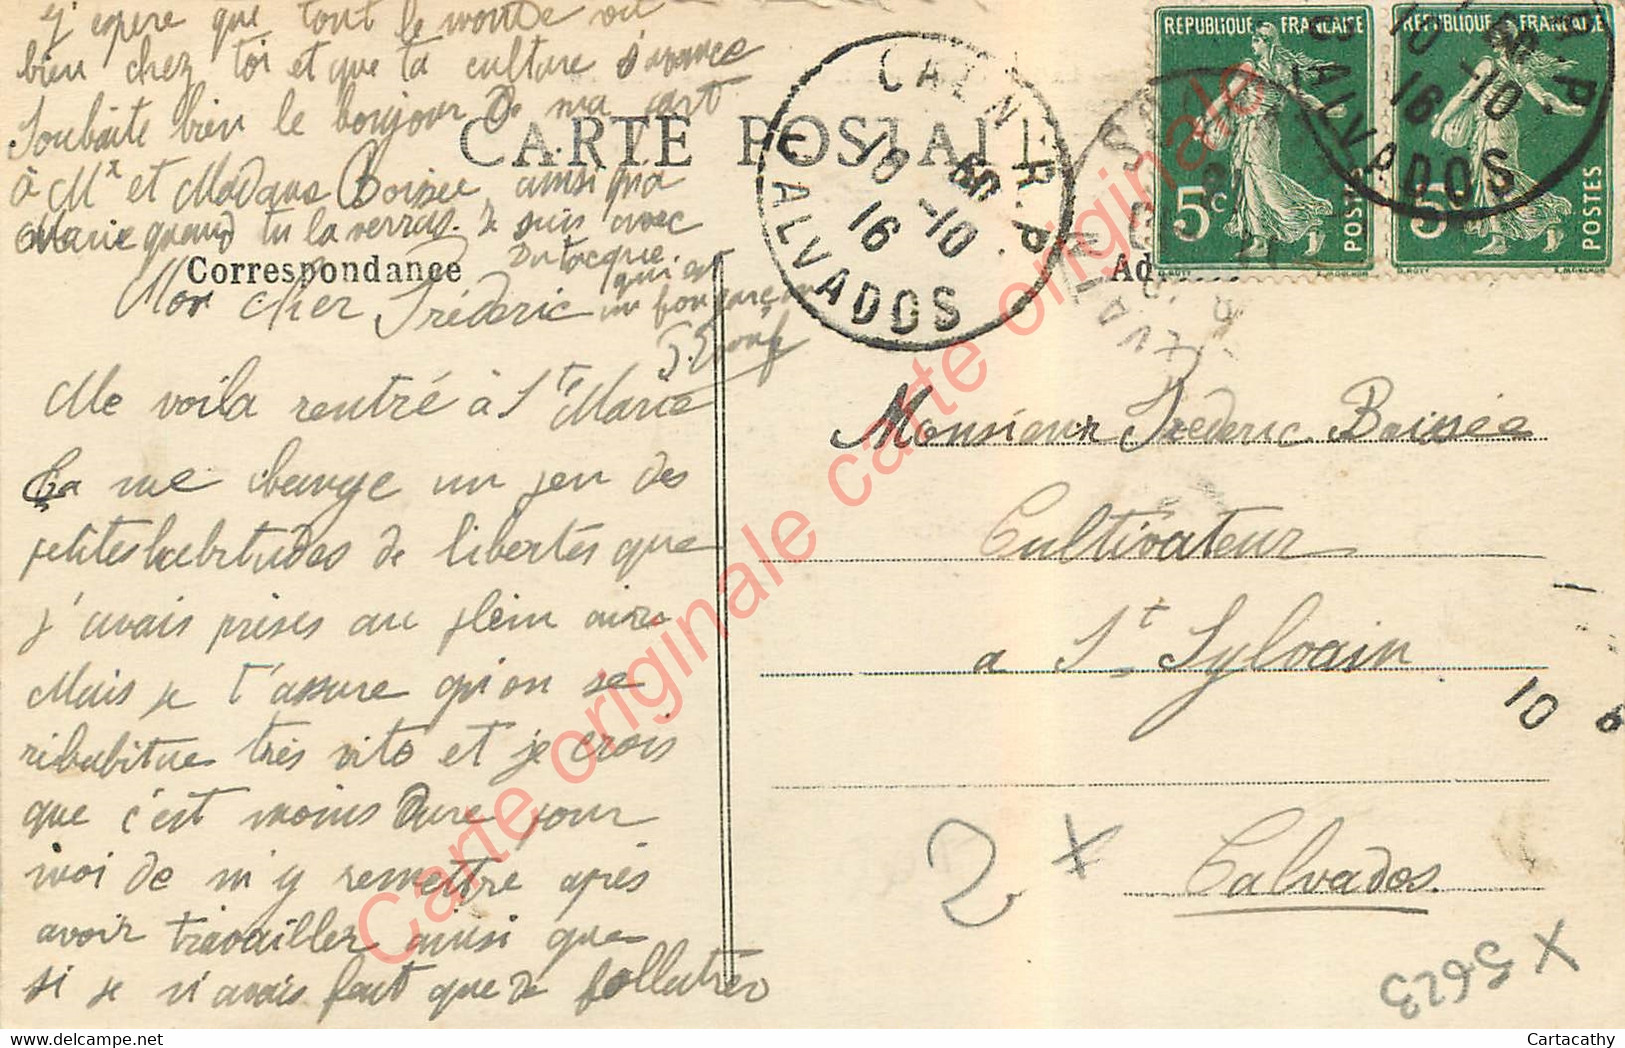 J'espère que tout le monde va
bien chez toi et que ta culture s'avance
Souhaite bien le bonjour de ma part
à Mr et Madame Boissée ainsi qu'a
Marie quand tu la verras. Je suis avec
Dutocque
qui est
un bon garçon
CARTE POSTALE
Correspondance
Mon cher Fréderic
Me voila rentré à Ste Marie
Ça me change un peu des
petites habitudes de libertés que
j'avais prises au plein air
Mais je t'assure qu'on se
rihabitue très vite et je crois
que c'est moins dure pour
moi de m'y remettre après
avoir travailler ainsi que
si je n'avais fait que de follatrer
REPUBLIQUE FRANCAISE
5c
POSTES
REPUBLIQUE FRANCAISE
5c
POSTES
CAEN R.P.
18 50
16 -10
CALVADOS
CALVADOS
16 -10
Monsieur Fréderic Boissée
Cultivateur
a St Sylvain
Calvados
10
2 x
X 5623
Carte originale carte originale
Cartacathy